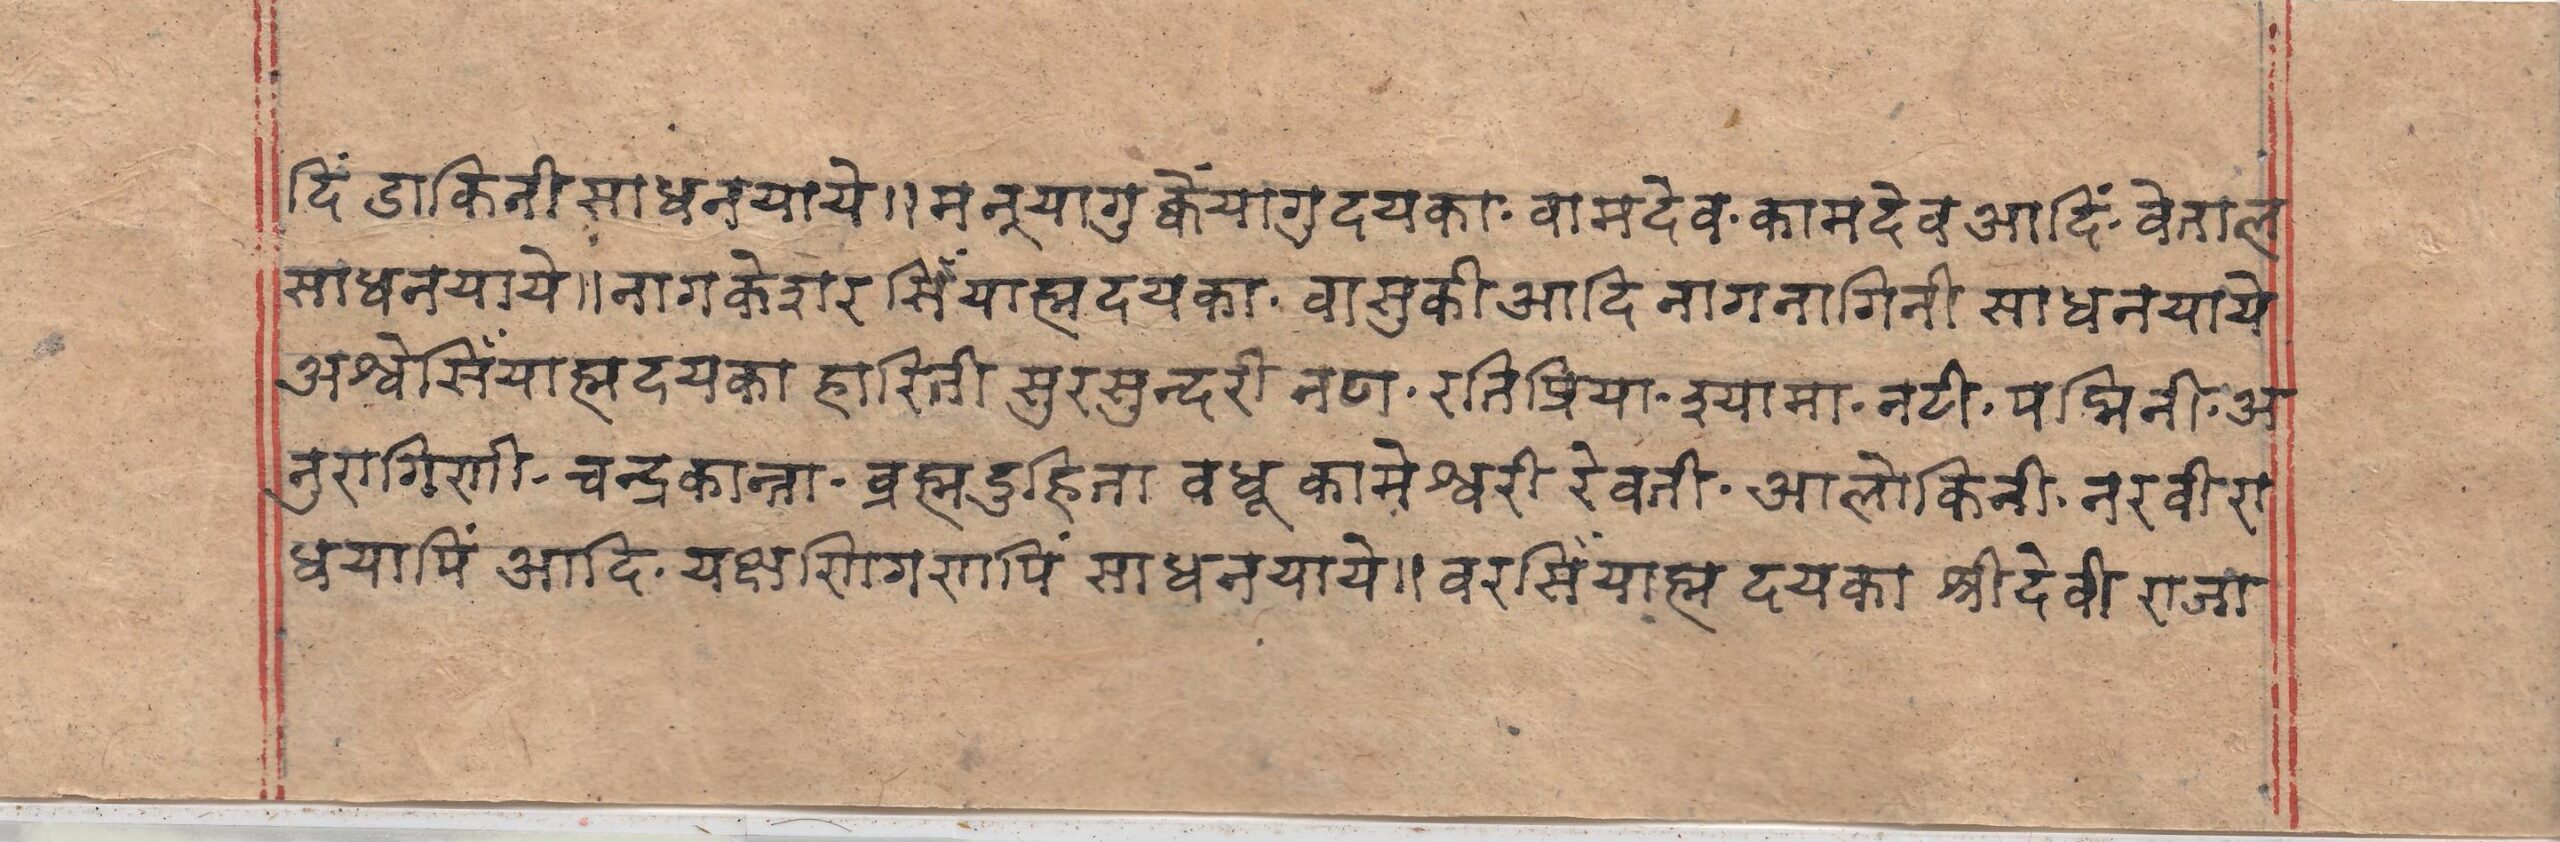 दिं डाकिनी साधनयाये॥ मनूयागु क्वेंयागु दयका· वामदेव· कामदेव आदिं· वेताल
साधनयाये॥ नागकेशर सिँयाह्म दयका· वासुकी आदि नागनागिनी साधनयाये
अश्वेसिँयाह्म दयका हारिती सुरसुन्दरी नण· रतिप्रिया· श्यामा· नटी· पद्मिनी· अ
नुरागिणी· चन्द्रकान्ता· व्रह्मदुहिता वधू कामेश्वरी रेवती· आलोकिनी· नरवीरा
धयापिं आदि· यक्षणिगणपिं साधनयाये॥ वरसिँयाह्म दयका श्रीदेवी राजा